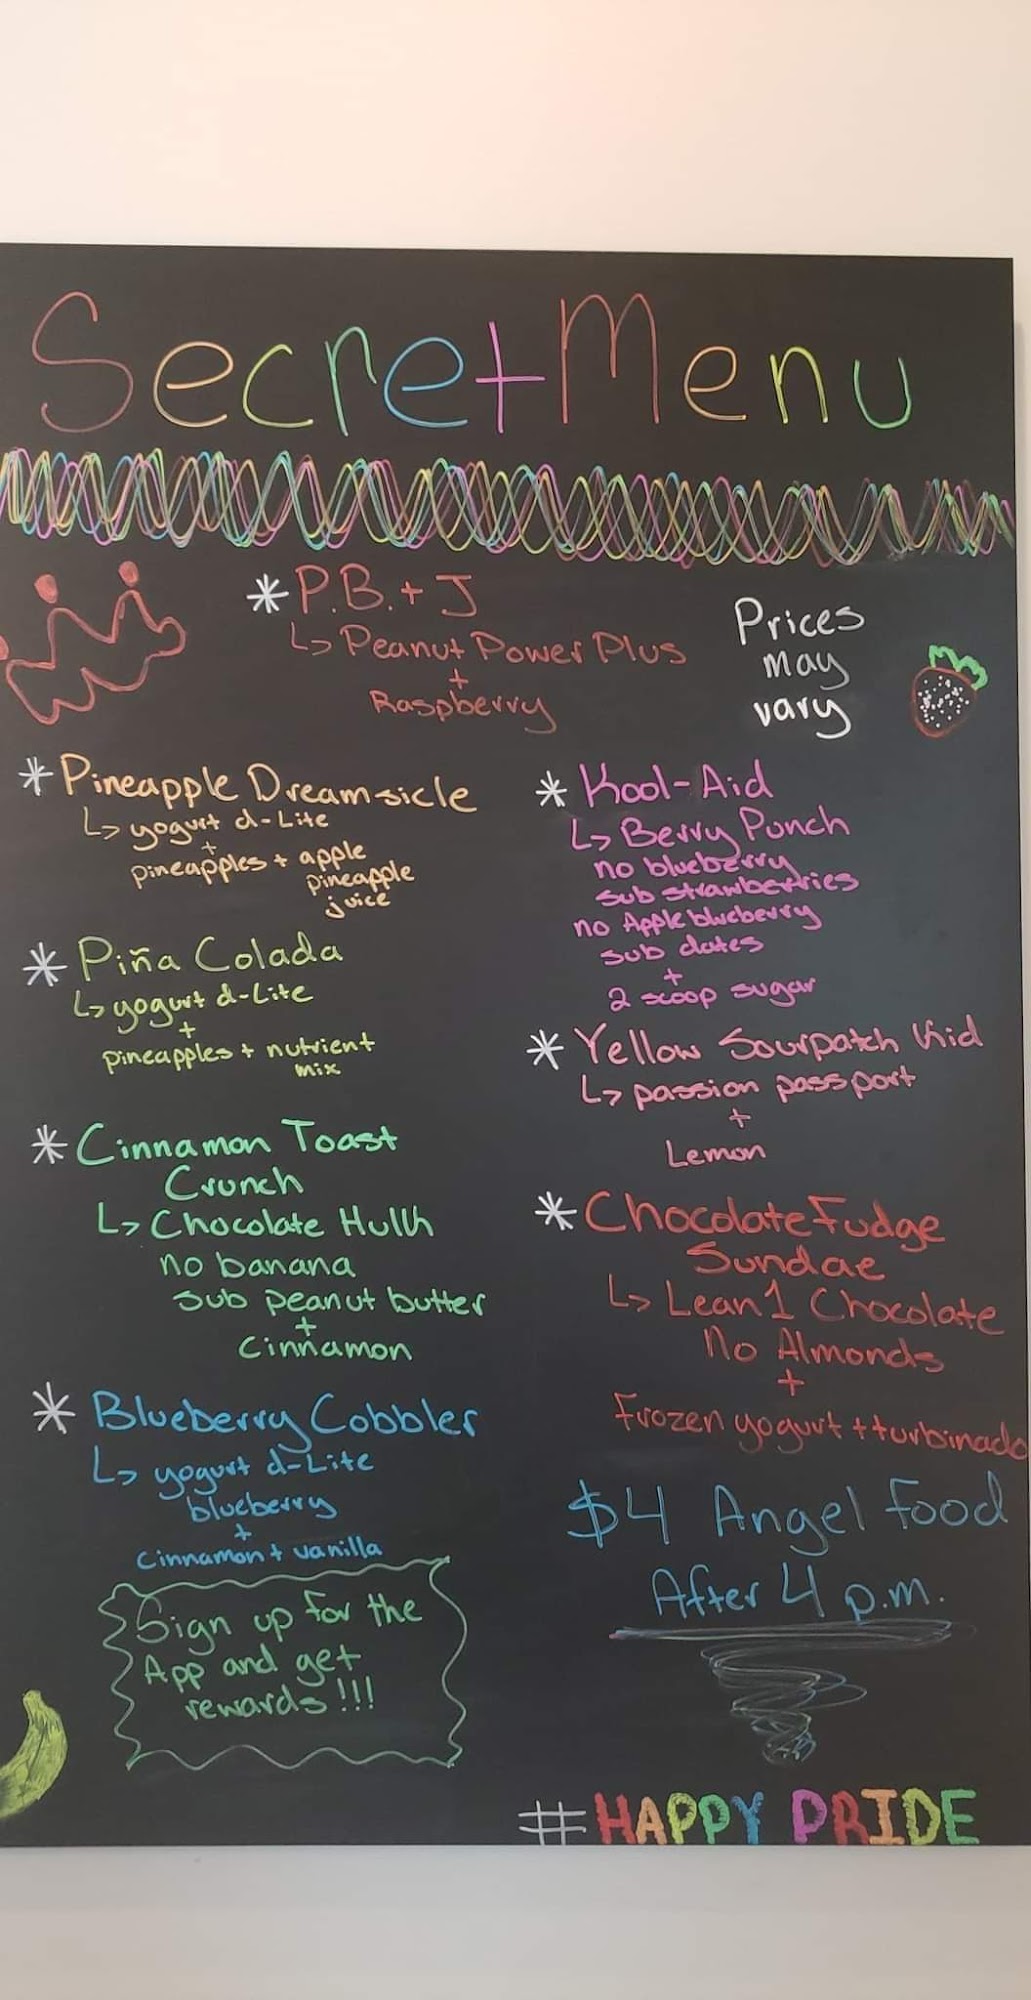 Secret Menu
* P.B. + J
↳ Peanut Power Plus
+
Raspberry
Prices
may
vary
* Pineapple Dreamsicle
↳ yogurt d-Lite
+
pineapples + apple
pineapple
juice
* Piña Colada
↳ yogurt d-Lite
+
pineapples + nutrient
mix
* Cinnamon Toast
Crunch
↳ Chocolate Hulk
no banana
sub peanut butter
+
cinnamon
* Blueberry Cobbler
↳ yogurt d-Lite
blueberry
+
cinnamon + vanilla
Sign up for the
App and get
rewards!!!
* Kool-Aid
↳ Berry Punch
no blueberry
sub strawberries
no Apple blueberry
sub dates
+
2 scoop sugar
* Yellow Sourpatch Kid
↳ passion passport
+
Lemon
* Chocolate Fudge
Sundae
↳ Lean1 Chocolate
No Almonds
+
Frozen yogurt + turbinado
$4 Angel Food
After 4 p.m.
#HAPPY PRIDE